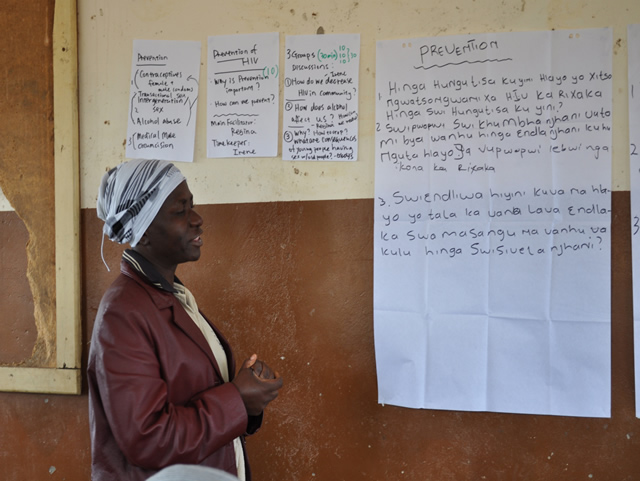 Prevention
(Contraceptives
female +
male condoms
Transactional sex
intergeneration
sex
Alcohol abuse
Medical Male
circumcision
Prevention of
HIV
(10)
Why is Prevention
important?
How can we prevent?
Main facilitator:
Regina
Timekeeper:
Irene
3 Groups
10
10
10
30
Discussions:
Irene
① How do we decrease
HIV in community?
② How does alcohol
affect us?
③ Why?
What are consequences
of young people having
sex w/old people?
PREVENTION
1. Hinga Hungutisa ku yini Hlayo yo Xitso
ngwatsongwani xa HIV ka Rixaka
Hinga swi Hungutisa ku yini?
2. Swipwopwi Swi Khumbha njhani Vuto
mi bya wanhu hinga Endla njhani ku hu
nguta Hlayo ya Vupwopwi lebwi nga
kona ka Rixaka
3. Swiendliwa hiyini kuva na hla
yo yo tala ka vana lava Endla-
ka Swa masangu na vanhu va
kulu hinga Swisivela njhani?